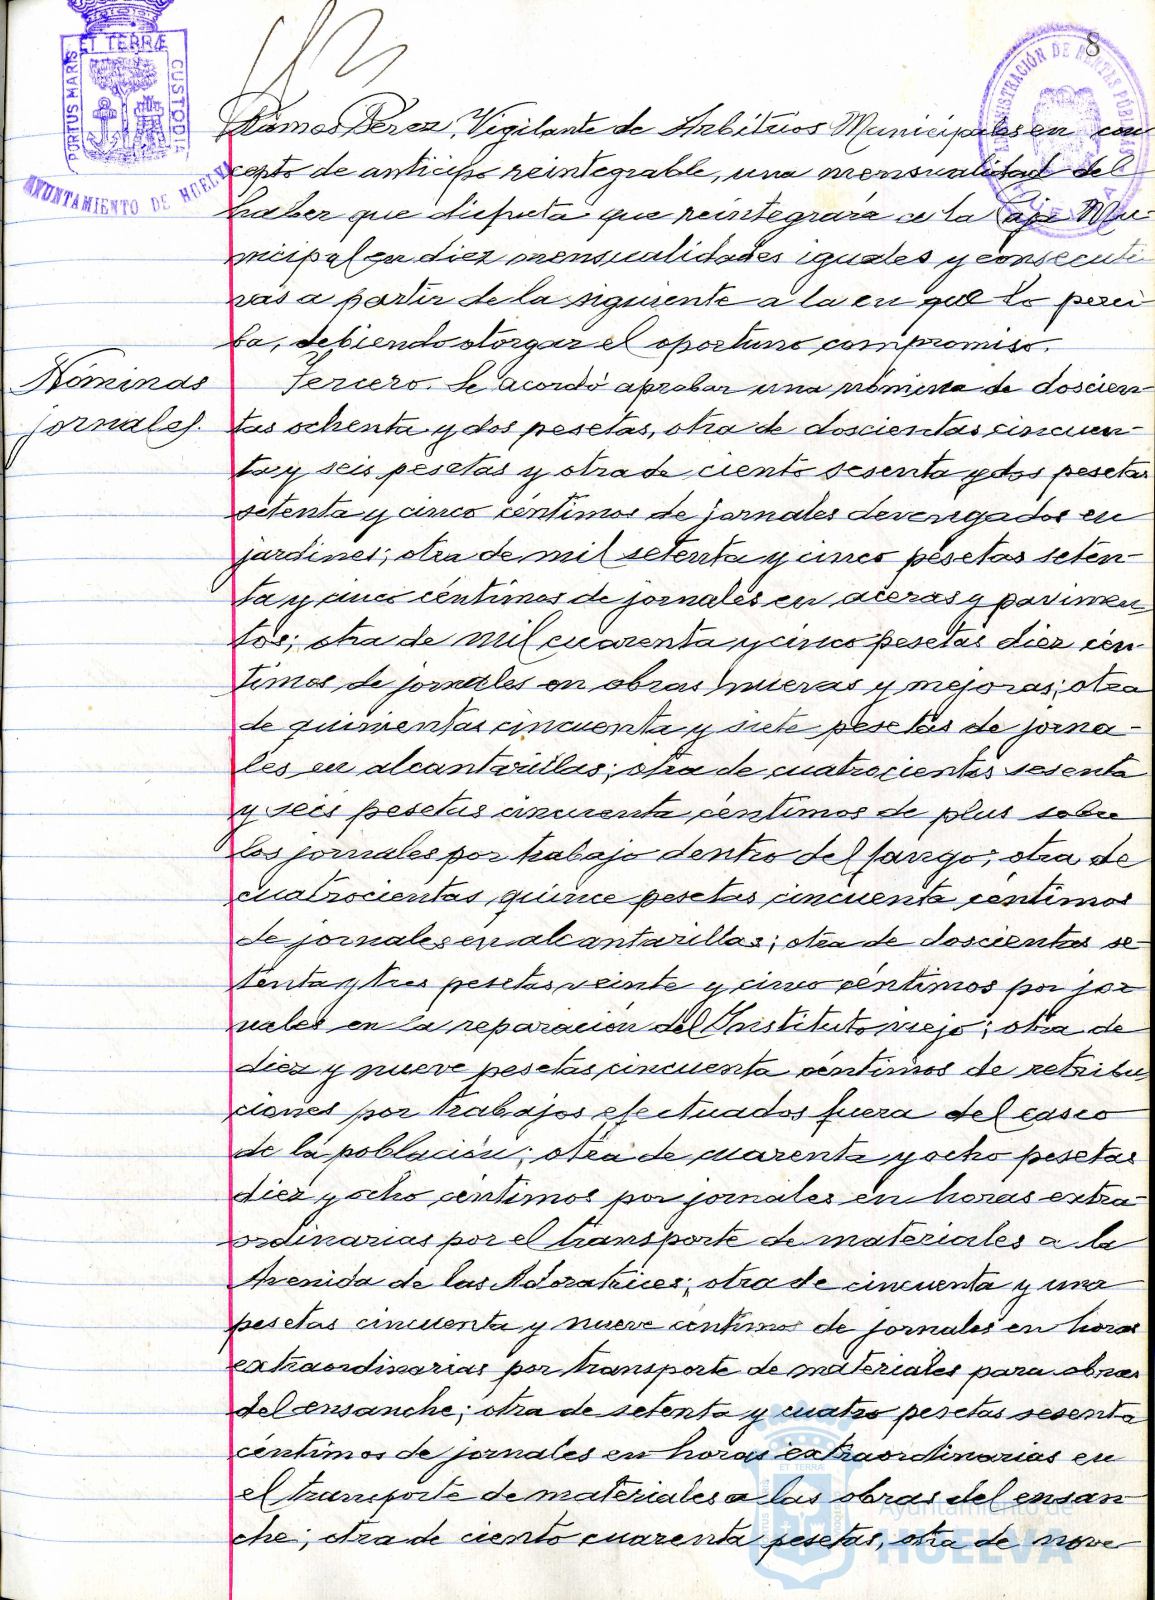 8
ET TERRÆ
PORTUS MARIS
CUSTODIA
AYUNTAMIENTO DE HUELVA
ADMINISTRACIÓN DE RENTAS PÚBLICAS
Ramos Perez, Vigilante de Arbitrios Municipales en con
cepto de anticipo reintegrable, una mensualidad del
haber que disfruta que reintegrará a la Caja Mu-
nicipal en diez mensualidades iguales y consecuti
vas a partir de la siguiente a la en que lo perci
ba, debiendo otorgar el oportuno compromiso.
Nóminas
jornales.
Tercero. Se acordó aprobar una nómina de doscien-
tas ochenta y dos pesetas, otra de doscientas cincuen-
ta y seis pesetas y otra de ciento sesenta y dos pesetas
setenta y cinco céntimos de jornales devengados en
jardines; otra de mil setenta y cinco pesetas seten-
ta y cinco céntimos de jornales en aceras y pavimen
tos; otra de mil cuarenta y cinco pesetas diez cén-
timos de jornales en obras nuevas y mejoras; otra
de quinientas cincuenta y siete pesetas de jorna-
les en alcantarillas; otra de cuatrocientas sesenta
y seis pesetas cincuenta céntimos de plus sobre
los jornales por trabajo dentro del fango; otra de
cuatrocientas quince pesetas cincuenta céntimos
de jornales en alcantarillas; otra de doscientas se-
tenta y tres pesetas veinte y cinco céntimos por jor
nales en la reparación del Instituto viejo; otra de
diez y nueve pesetas cincuenta céntimos de retribu
ciones por trabajos efectuados fuera del casco
de la población; otra de cuarenta y ocho pesetas
diez y ocho céntimos por jornales en horas extra-
ordinarias por el transporte de materiales a la
Avenida de las Adoratrices; otra de cincuenta y una
pesetas cincuenta y nueve céntimos de jornales en horas
extraordinarias por transporte de materiales para obras
del ensanche; otra de setenta y cuatro pesetas sesenta
céntimos de jornales en horas extraordinarias en
el transporte de materiales a las obras del ensan
che; otra de ciento cuarenta pesetas, otra de nove
Ayuntamiento de
HUELVA